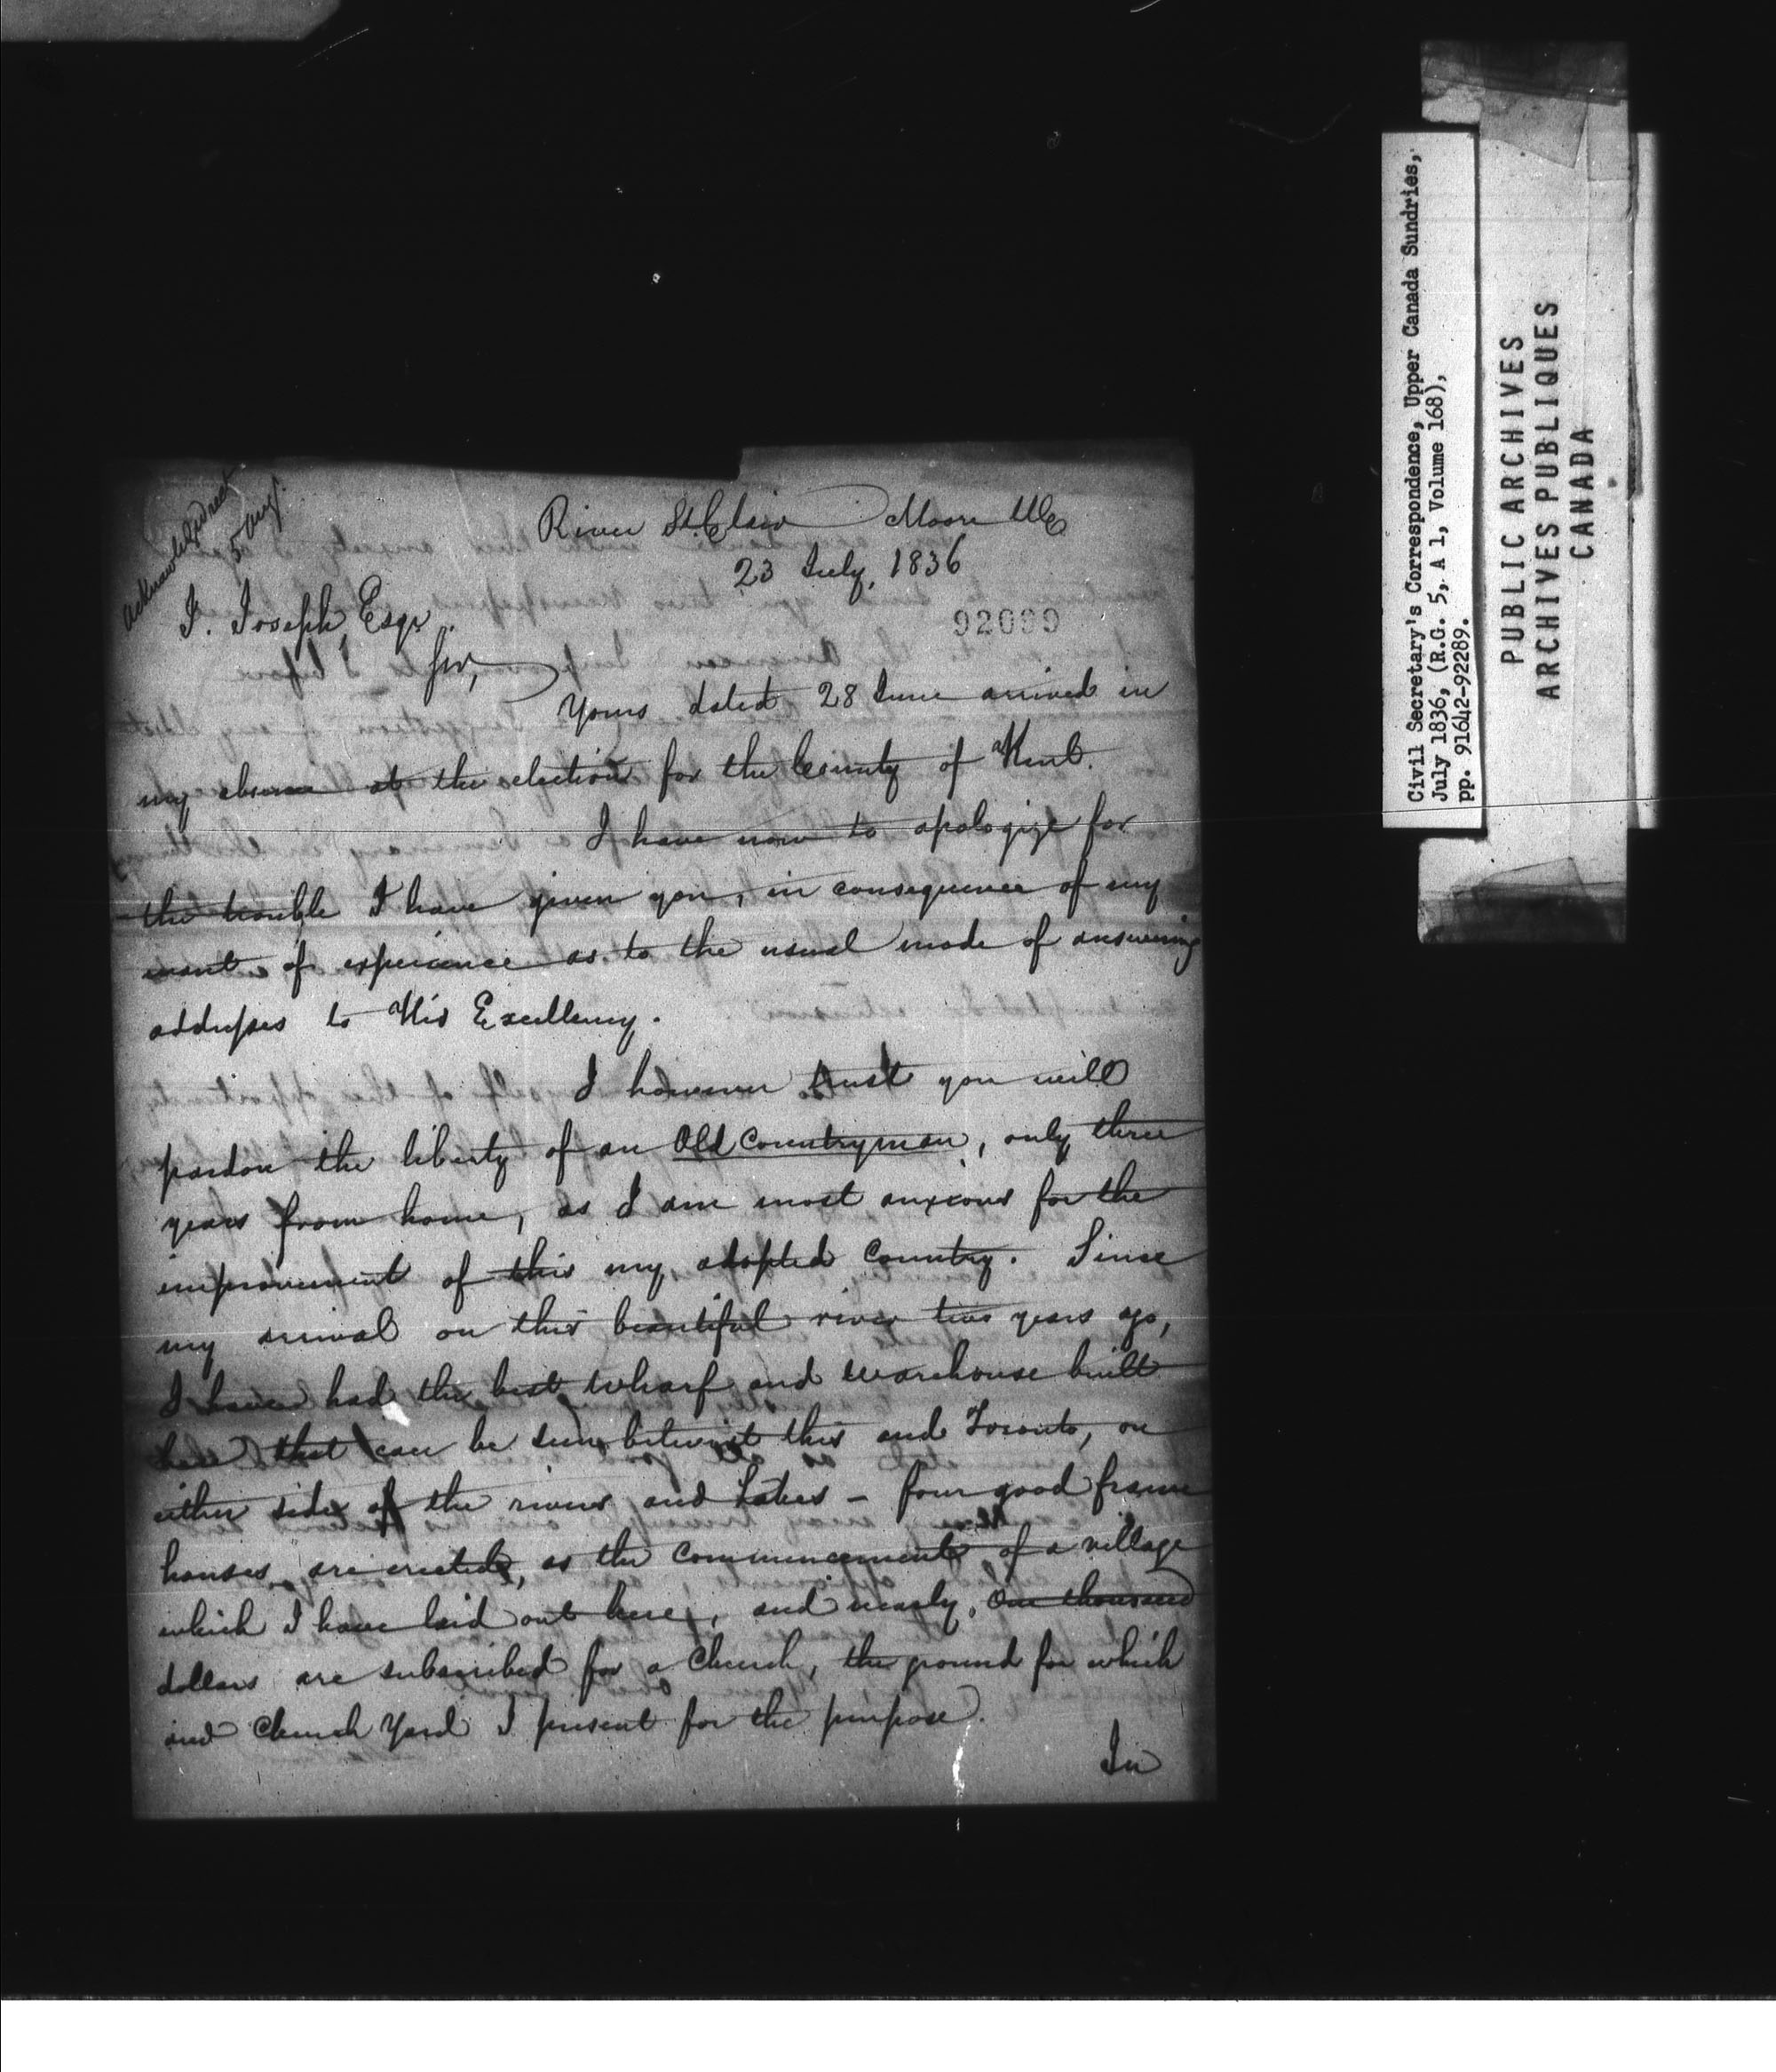 Acknowledge direct
5 Aug.
River St. Clair Moore U.C.
23 July, 1836
J. Joseph, Esqr.
92099
Sir,
Yours dated 28 June arrived in
my absence at the election for the County of Kent.
I have now to apologize for
the trouble I have given you, in consequence of my
want of experience as to the usual mode of answering
addresses to His Excellency.
I however trust you will
pardon the liberty of an Old Countryman, only three
years from home, as I am most anxious for the
improvement of this my adopted Country. Since
my arrival on this beautiful river two years ago,
I have had the best wharf and warehouse built
here that can be seen betwixt this and Toronto, on
either side of the rivers and Lakes – four good frame
houses are erected, as the commencement of a village
which I have laid out here, and nearly One thousand
dollars are subscribed for a Church, the ground for which
and Church Yard I present for the purpose.
In
Civil Secretary's Correspondence, Upper Canada Sundries,
July 1836, (R.G. 5, A 1, Volume 168),
pp. 91642-92289.
PUBLIC ARCHIVES
ARCHIVES PUBLIQUES
CANADA